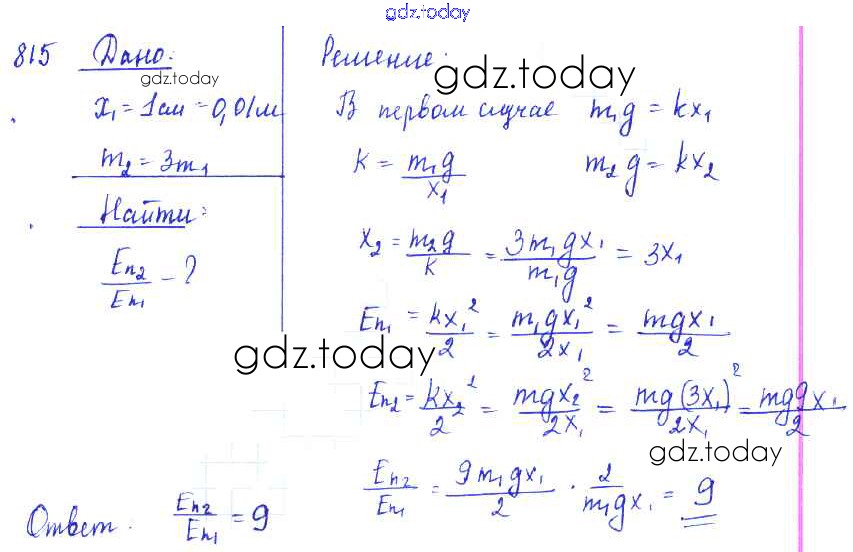 gdz.today
815 Дано:
gdz.today
x₁ = 1см = 0,01м
m₂ = 3m₁
Найти:
Eп₂/Eп₁ - ?
Решение:
gdz.today
В первом случае m₁g = kx₁
k = m₁g/x₁ m₂g = kx₂
x₂ = m₂g/k = 3m₁gx₁/m₁g = 3x₁
Eп₁ = kx₁²/2 = m₁gx₁²/2x₁ = mgx₁/2
gdz.today
Eп₂ = kx₂²/2 = mgx₂²/2x₁ = mg(3x₁)²/2x₁ = mg9x₁/2
gdz.today
Eп₂/Eп₁ = 9m₁gx₁/2 · 2/m₁gx₁ = 9
Ответ. Eп₂/Eп₁ = 9